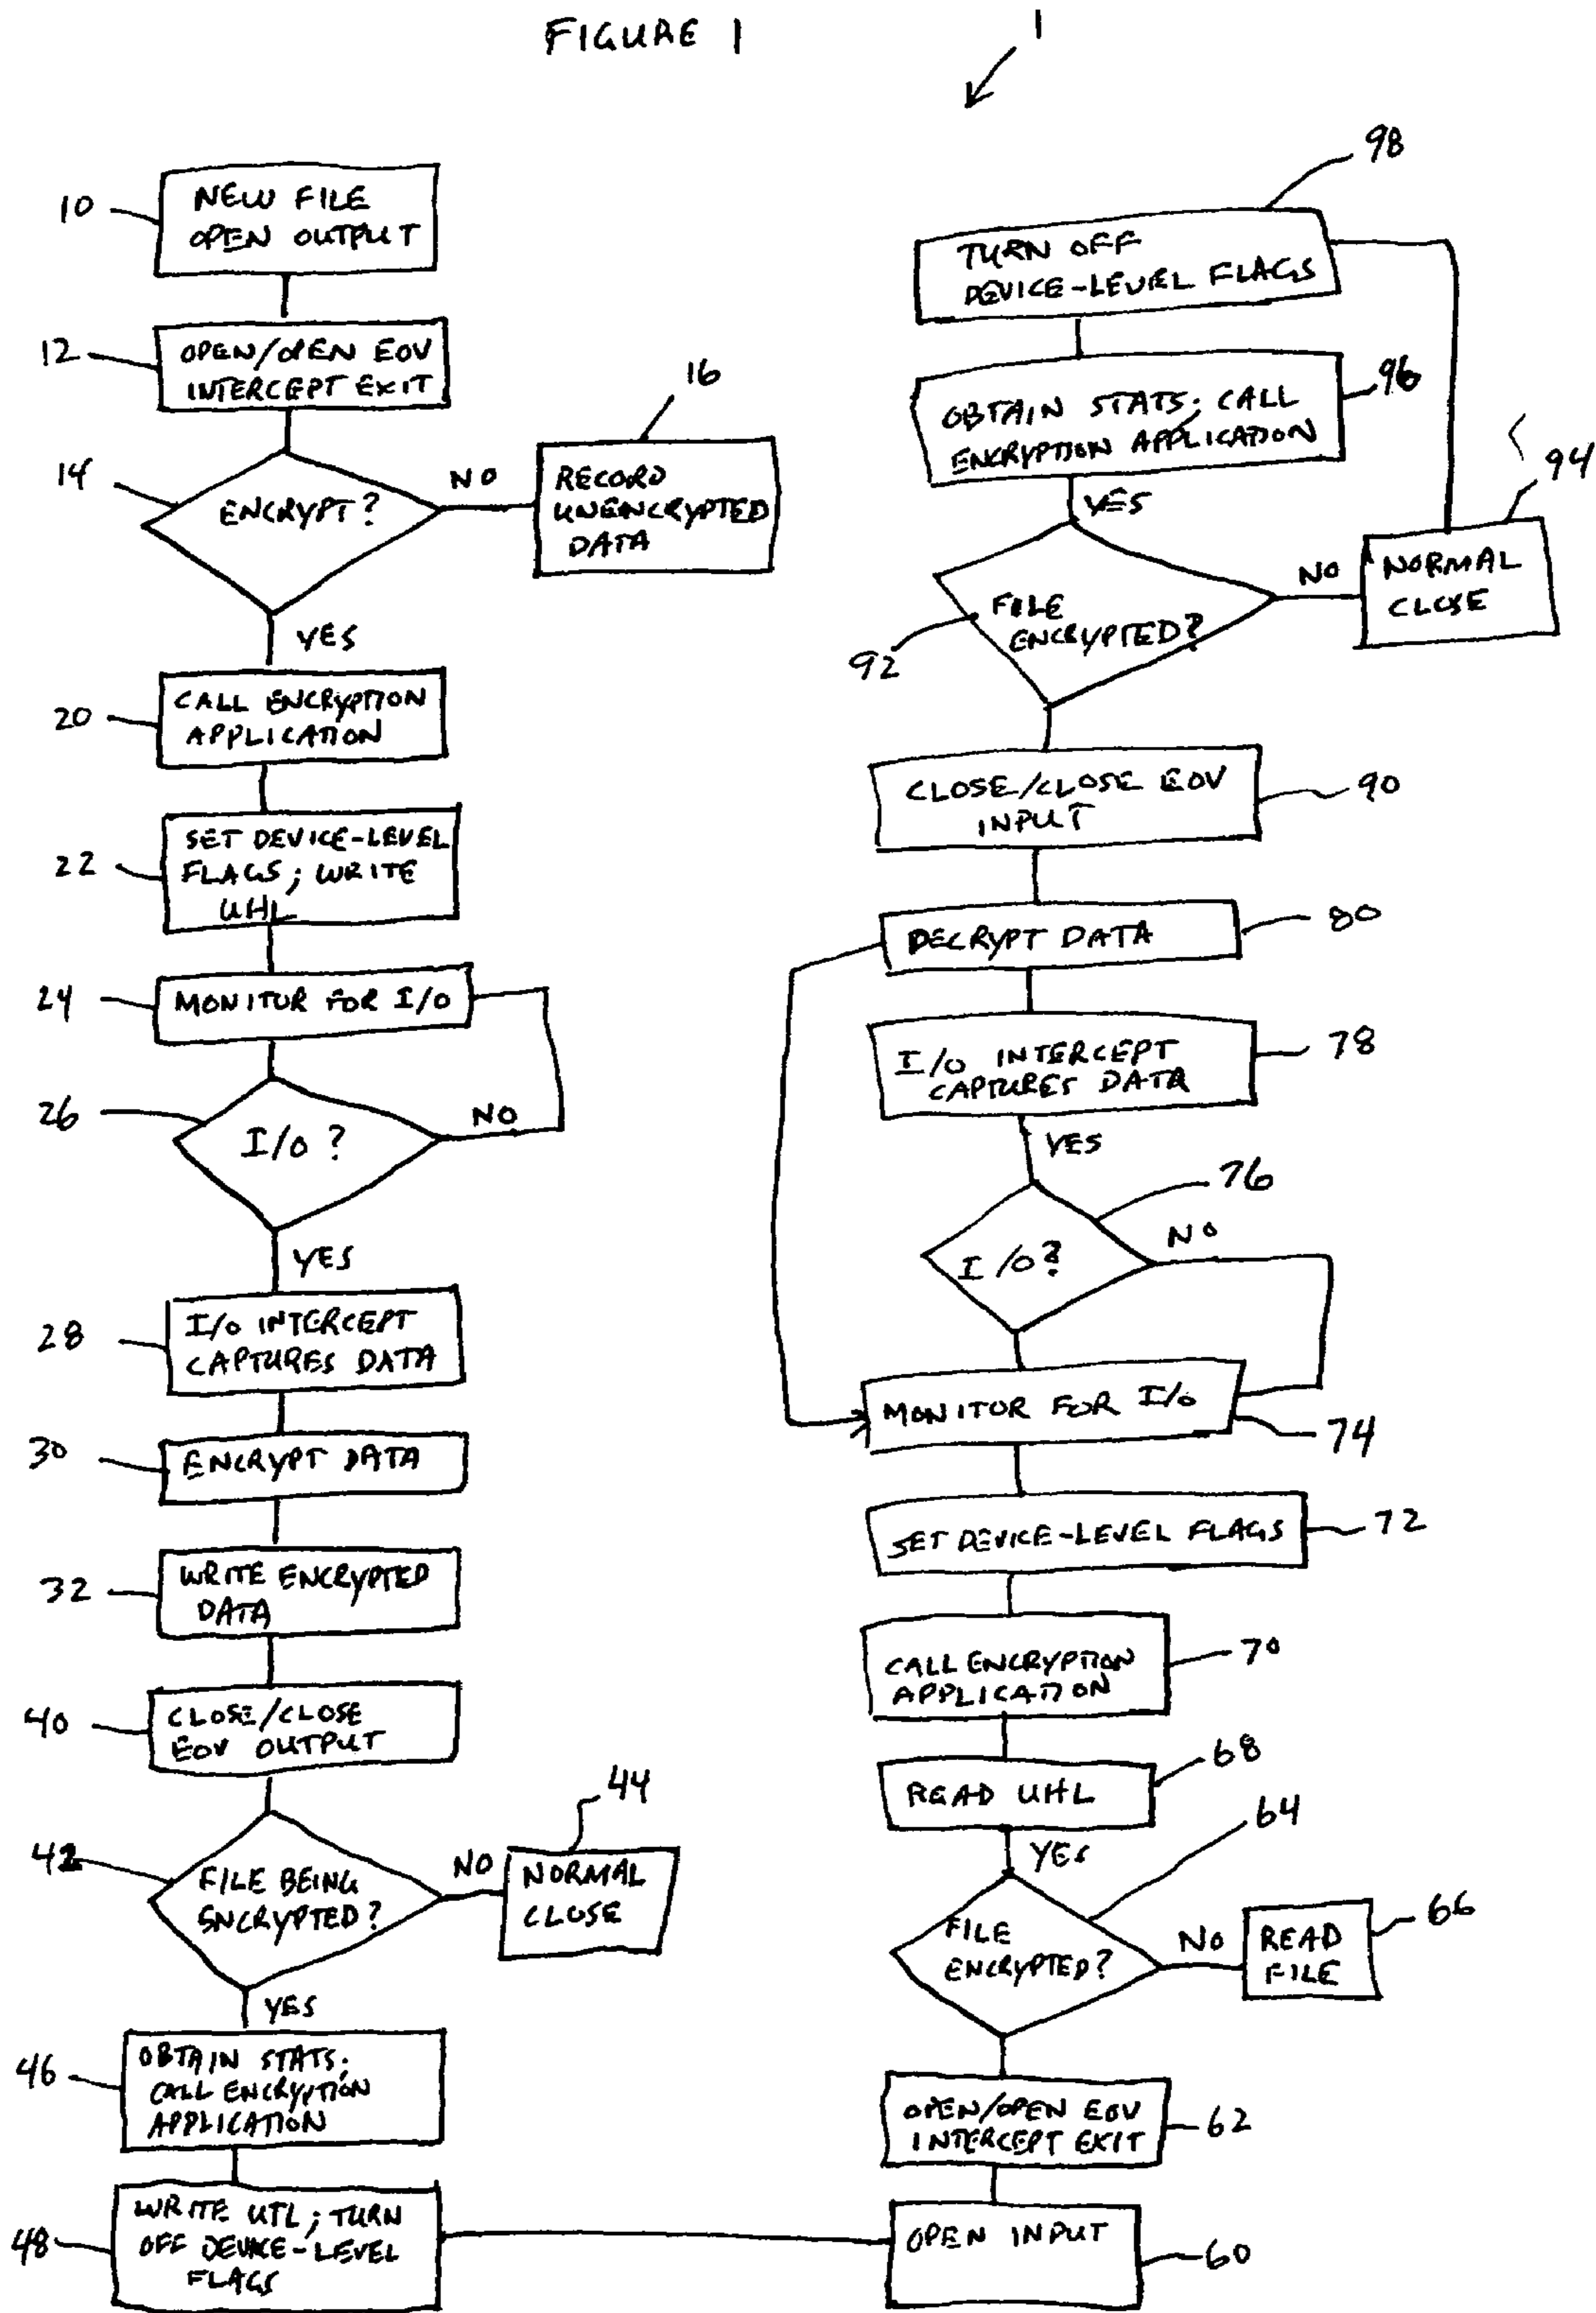 FIGURE 1
1
10
NEW FILE
OPEN OUTPUT
12
OPEN/OPEN EOV
INTERCEPT EXIT
14
ENCRYPT?
NO
16
RECORD
UNENCRYPTED
DATA
YES
20
CALL ENCRYPTION
APPLICATION
22
SET DEVICE-LEVEL
FLAGS; WRITE
UHL
24
MONITOR FOR I/O
26
I/O?
NO
YES
28
I/O INTERCEPT
CAPTURES DATA
30
ENCRYPT DATA
32
WRITE ENCRYPTED
DATA
40
CLOSE/CLOSE
EOV OUTPUT
42
FILE BEING
ENCRYPTED?
NO
44
NORMAL
CLOSE
YES
46
OBTAIN STATS;
CALL ENCRYPTION
APPLICATION
48
WRITE UTL; TURN
OFF DEVICE-LEVEL
FLAGS
98
TURN OFF
DEVICE-LEVEL FLAGS
96
OBTAIN STATS; CALL
ENCRYPTION APPLICATION
YES
94
NORMAL
CLOSE
NO
FILE
ENCRYPTED?
92
CLOSE/CLOSE EOV
INPUT
90
DECRYPT DATA
80
I/O INTERCEPT
CAPTURES DATA
78
YES
76
I/O?
NO
MONITOR FOR I/O
74
SET DEVICE-LEVEL FLAGS
72
CALL ENCRYPTION
APPLICATION
70
READ UHL
68
YES
64
FILE
ENCRYPTED?
NO
READ
FILE
66
OPEN/OPEN EOV
INTERCEPT EXIT
62
OPEN INPUT
60